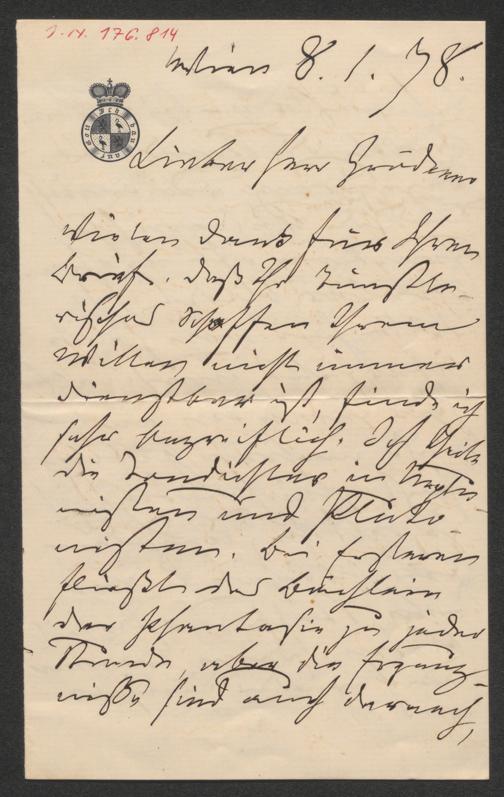 I.N. 176.814
Wien 8. 1. 78.
Lieber Herr Grädener
Vielen Dank für Ihren
Brief. Daß Ihr künstle-
risches Schaffen Ihrem
Willen nicht immer
dienstbar ist, finde ich
sehr begreiflich. Ich theile
die Tondichter in Neptu
nisten und Pluto
nisten. Bei Ersteren
fließt das Bächlein
der Phantasie zu jeder
Stunde, aber die Erzeug-
nisse sind auch darnach,